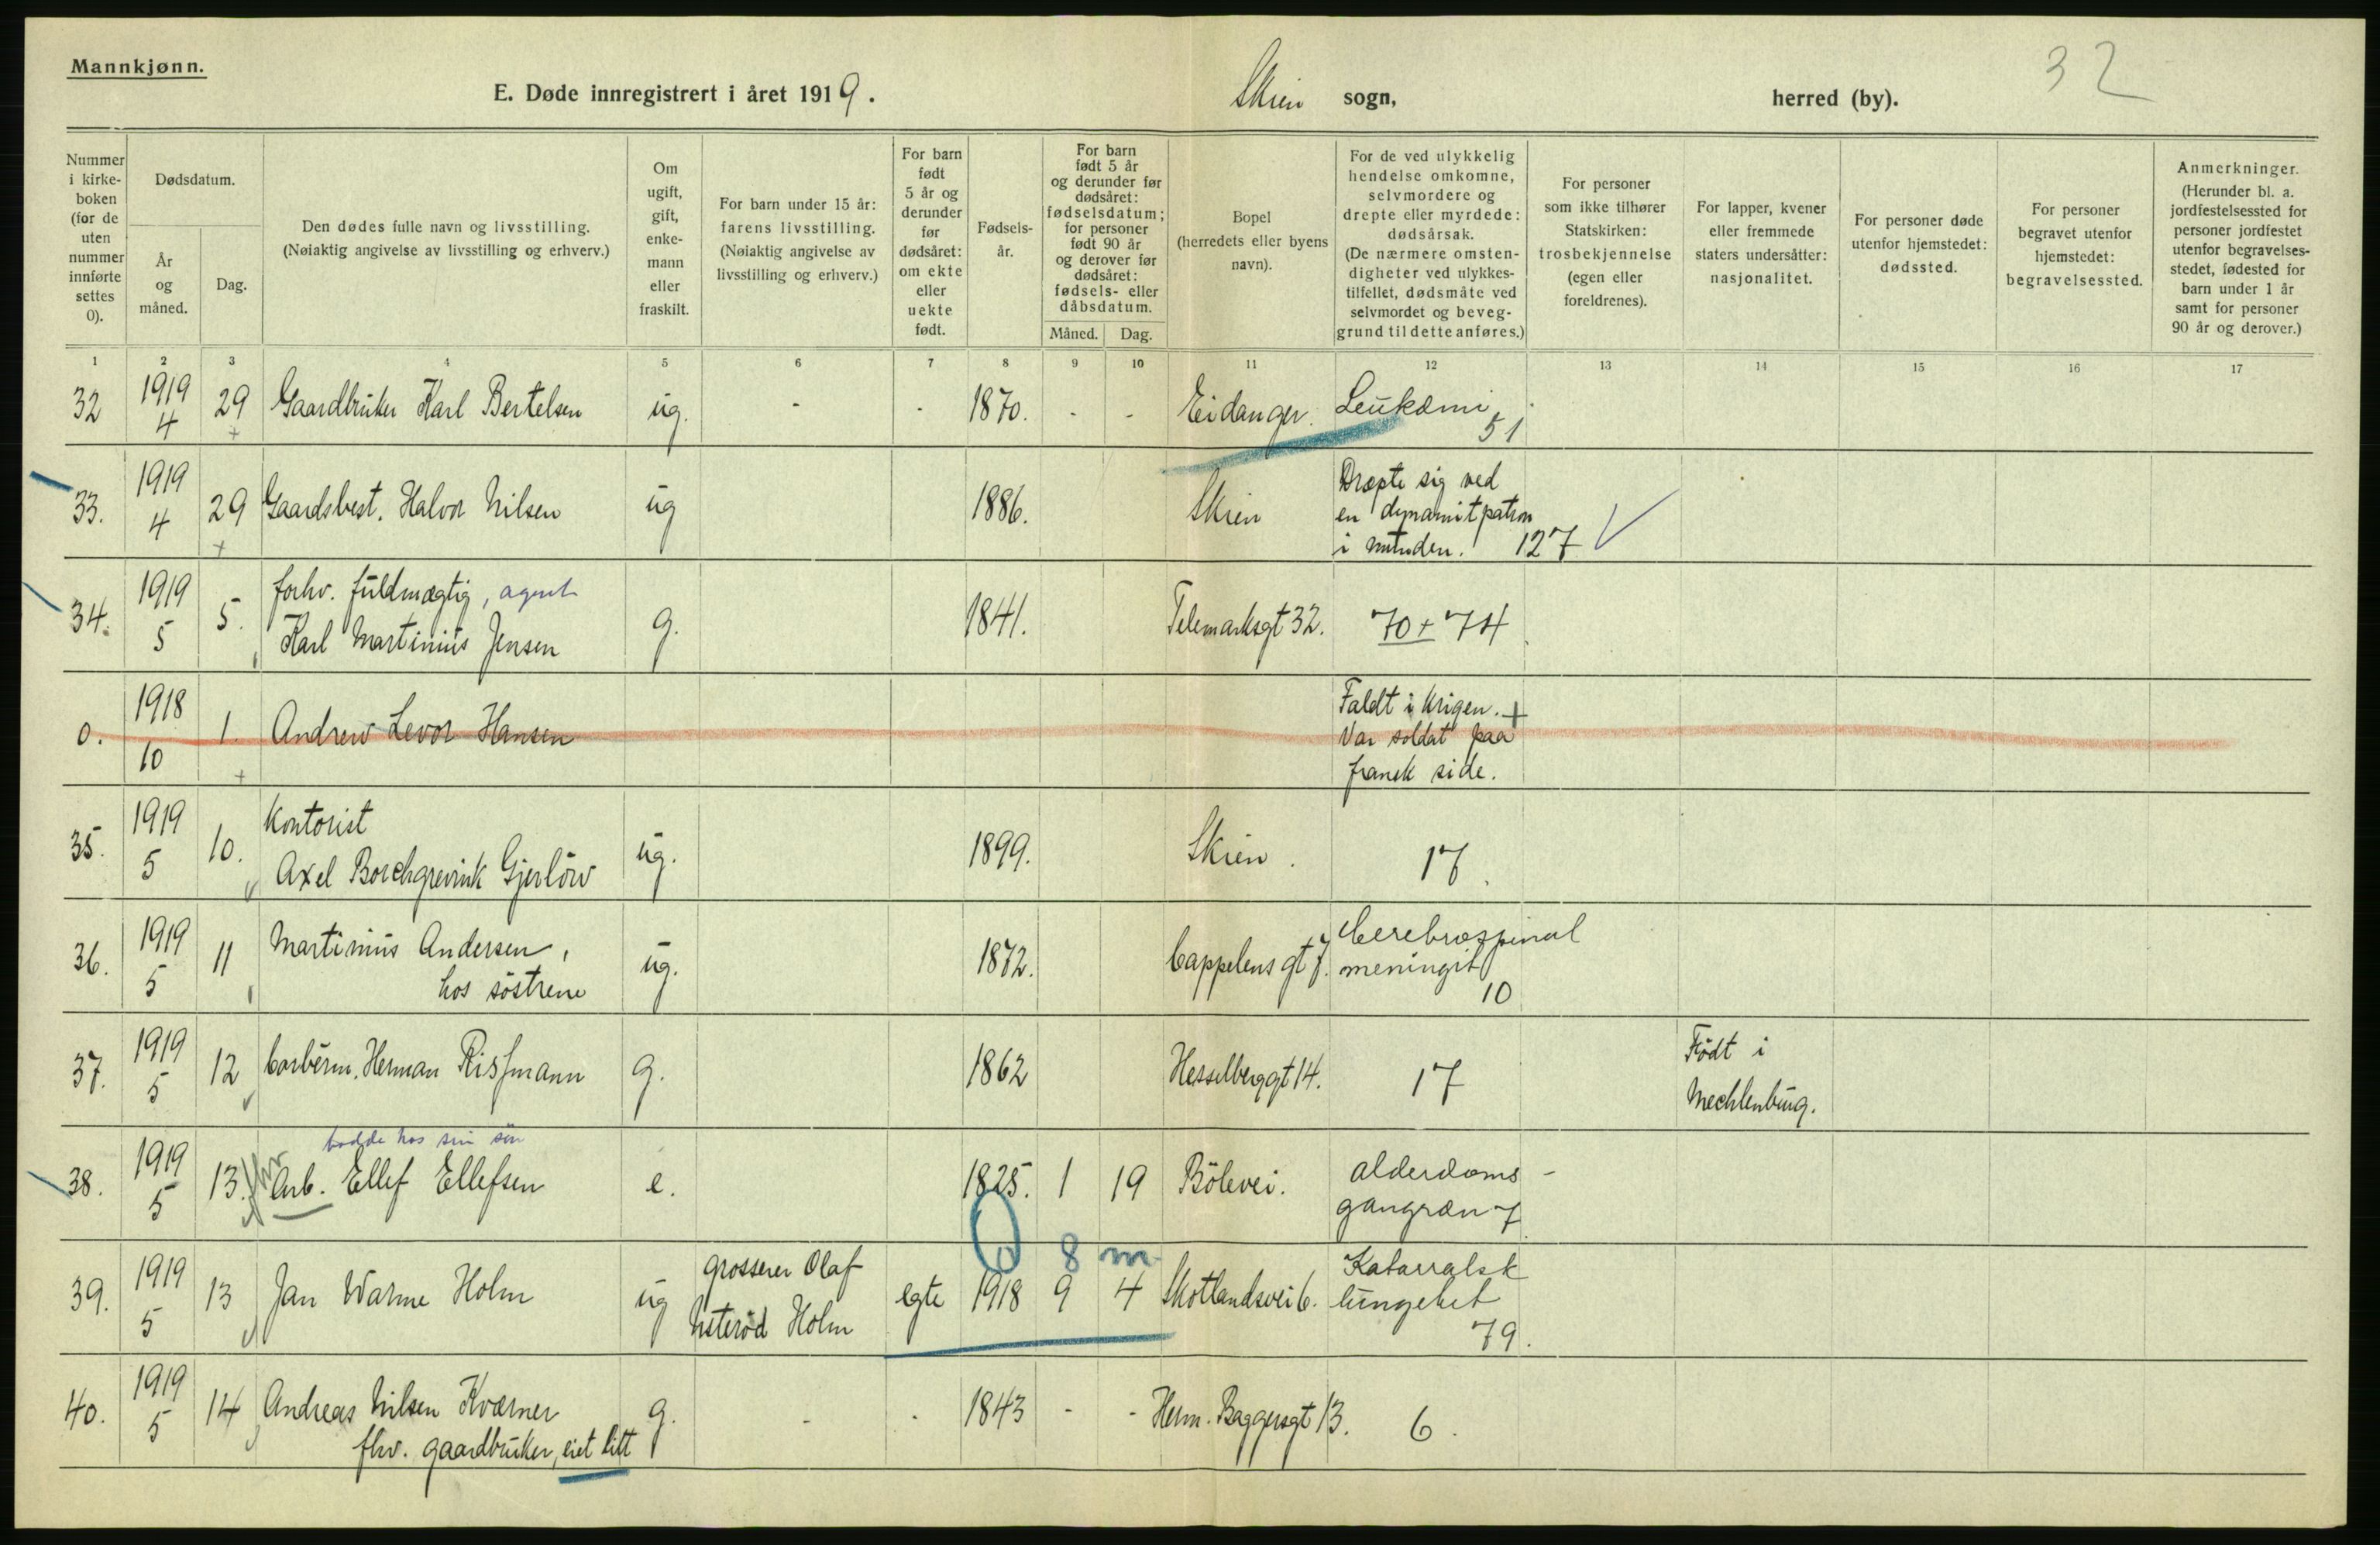 Mannkjønn.
32
E. Døde innregistrert i året 1919. Skien sogn, herred (by).
Nummer i kirkeboken (for de uten nummer innførte settes 0).
Dødsdatum.
År og måned.
Dag.
Den dødes fulle navn og livsstilling.
(Nøiaktig angivelse av livsstilling og erhverv.)
Om ugift, gift, enkemann eller fraskilt.
For barn under 15 år: farens livsstilling. (Nøiaktig angivelse av livsstilling og erhverv.)
For barn født 5 år og derunder før dødsåret: om ekte eller uekte født.
Fødselsår.
For barn født 5 år og derunder før dødsåret: fødselsdatum; for personer født 90 år og derover før dødsåret: fødsels- eller dåbsdatum.
Måned. Dag.
Bopel (herredets eller byens navn).
For de ved ulykkelig hendelse omkomne, selvmordere og drepte eller myrdede: dødsårsak. (De nærmere omstendigheter ved ulykkestilfellet, dødsmåte ved selvmordet og beveggrund til dette anføres.)
For personer som ikke tilhører Statskirken: trosbekjennelse (egen eller foreldrenes).
For lapper, kvener eller fremmede staters undersåtter: nasjonalitet.
For personer døde utenfor hjemstedet: dødssted.
For personer begravet utenfor hjemstedet: begravelsessted.
Anmerkninger. (Herunder bl. a. jordfestelsessted for personer jordfestet utenfor begravelsesstedet, fødested for barn under 1 år samt for personer 90 år og derover.)
1 2 3 4 5 6 7 8 9 10 11 12 13 14 15 16 17
32 1919 4 29 + Gaardbruker Karl Bertelsen ug. - - 1870. - - Eidanger. Leukæmi. 51
33. 1919 4 29 + Gaardsbest. Halvor Nilsen ug 1886. Skien Dræpte sig ved
en dynamitpatron
i munden. 127
34. 1919 5 5. forhv. fuldmægtig, agent
Karl Martinius Jensen g. 1841. Telemarksgt 32. 70 + 74
0. 1918 10 1. + Andrew Levor Hansen Faldt i krigen. +
Var soldat paa
fransk side.
35. 1919 5 10. Kontorist
Axel Borchgrevink Gjerlöw ug. 1899. Skien. 17.
36. 1919 5 11 Martinius Andersen,
hos söstrene ug. 1872. Cappelens gt 7. Cerebrospinal
meningit 10
37. 1919 5 12 Herman Rissmann g. 1862 Hesselberggt 14. 17 Födt i
Mechlenburg.
bodde hos sin sön
38. 1919 5 13. fhv Arb. Ellef Ellefsen e. 1825. 1 19 Bölevei. alderdoms-
gangræn 7
0 8 m
39. 1919 5 13 Jan Warme Holm ug grosserer Olaf
Holm egte 1918 9 4 Skotlandsvei 6. Katarralsk
lungebet 79.
40. 1919 5 14 Andreas Nilsen Kværner
fhv. gaardbruker, eiet litt g. - - 1843 - - Herm. Baggersgt 13. 6.